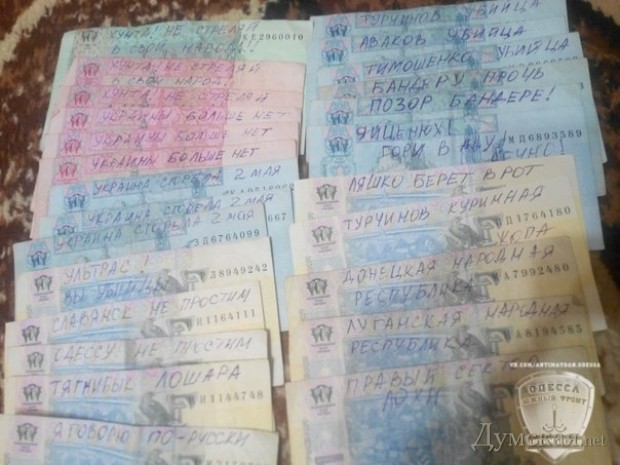 ХУНТА! НЕ СТРЕЛЯЙ
В СВОЙ НАРОД!!
КЕ2960010
ХУНТА! НЕ СТРЕЛЯЙ
В СВОЙ НАРОД!
ХУНТА! НЕ СТРЕЛЯЙ
УКРАИНЫ БОЛЬШЕ НЕТ
УКРАИНЫ БОЛЬШЕ НЕТ
УКРАИНЫ БОЛЬШЕ НЕТ
УКРАИНА СГОРЕЛА 2 МАЯ
УКРАИНА СГОРЕЛА 2 МАЯ
667
УКРАИНА СГОРЕЛА 2 МАЯ
ЗД6764099
УЛЬТРАС!
38949242
ВЫ УБИЙЦЫ
СЛАВЯНСК НЕ ПРОСТИМ
1164111
ОДЕССУ НЕ ПРОСТИМ
ТЯГНИБЫК ЛОШАРА
1144748
Я ГОВОРЮ ПО-РУССКИ
ТУРЧИНОВ УБИЙЦА
АВАКОВ УБИЙЦА
ТИМОШЕНКО УБИЙЦА
БАНДЕРУ ПРОЧЬ
ПОЗОР БАНДЕРЕ!
ЯЙЦЕНЮХ!
МД6893589
ГОРИ В АДУ
ЛЯШКО БЕРЕТ В РОТ
ТУРЧИНОВ КУРИННАЯ
1764180
ЖОПА
ДОНЕЦКАЯ НАРОДНАЯ
РЕСПУБЛИКА
А7992480
ЛУГАНСКАЯ НАРОДНАЯ
РЕСПУБЛИКА
А8194585
ПРАВЫЙ СЕКТОР
ЛОХИ
VK.COM/ANTIMAYDAN.ODESSA
ОДЕССА
ЮЖНЫЙ ФРОНТ
Думская.net